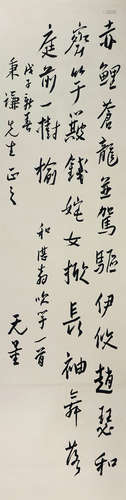 赤鲤蒼龍並駕驅伊攸趙瑟和
齊竽點錢姹女掀長袖舞落
庭前一樹榆
和湛翁吹竽一首
戊子新春
秉謙先生正之
无量